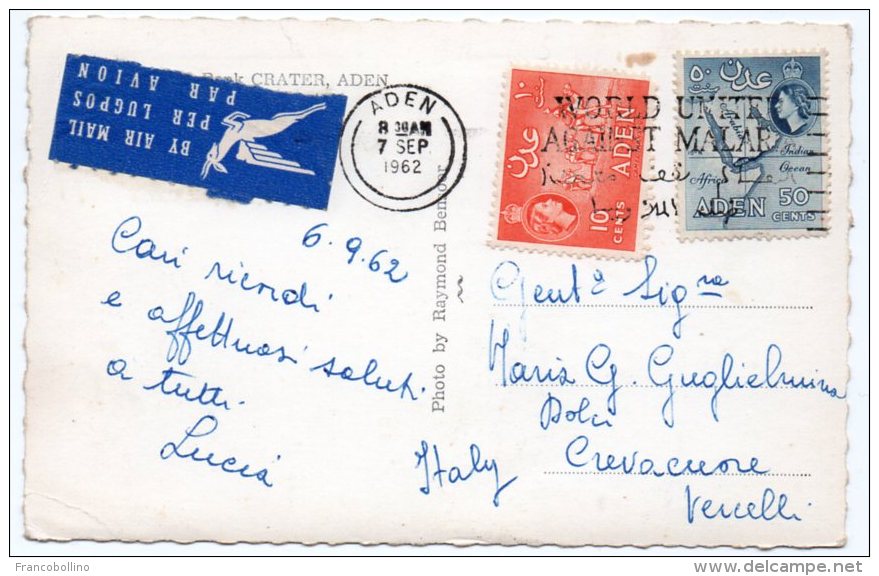 CRATER, ADEN
BY AIR MAIL
PER LUGPOS
PAR AVION
ADEN
8 30 AM
7 SEP
1962
WORLD UNITED
AGAINST MALAR
عدن
١٠
ADEN
10
CENTS
عدن
٥٠
Arabia
Indian
Ocean
Africa
ADEN
50
CENTS
6.9.62
Cari ricordi
e affettuosi saluti
a tutti.
Lucia
Photo by Raymond
Gent. Sig.ra
Maria G. Guglielmina
Crevacuore
Vercelli
Italy
Francobollino
www.delcampe.net